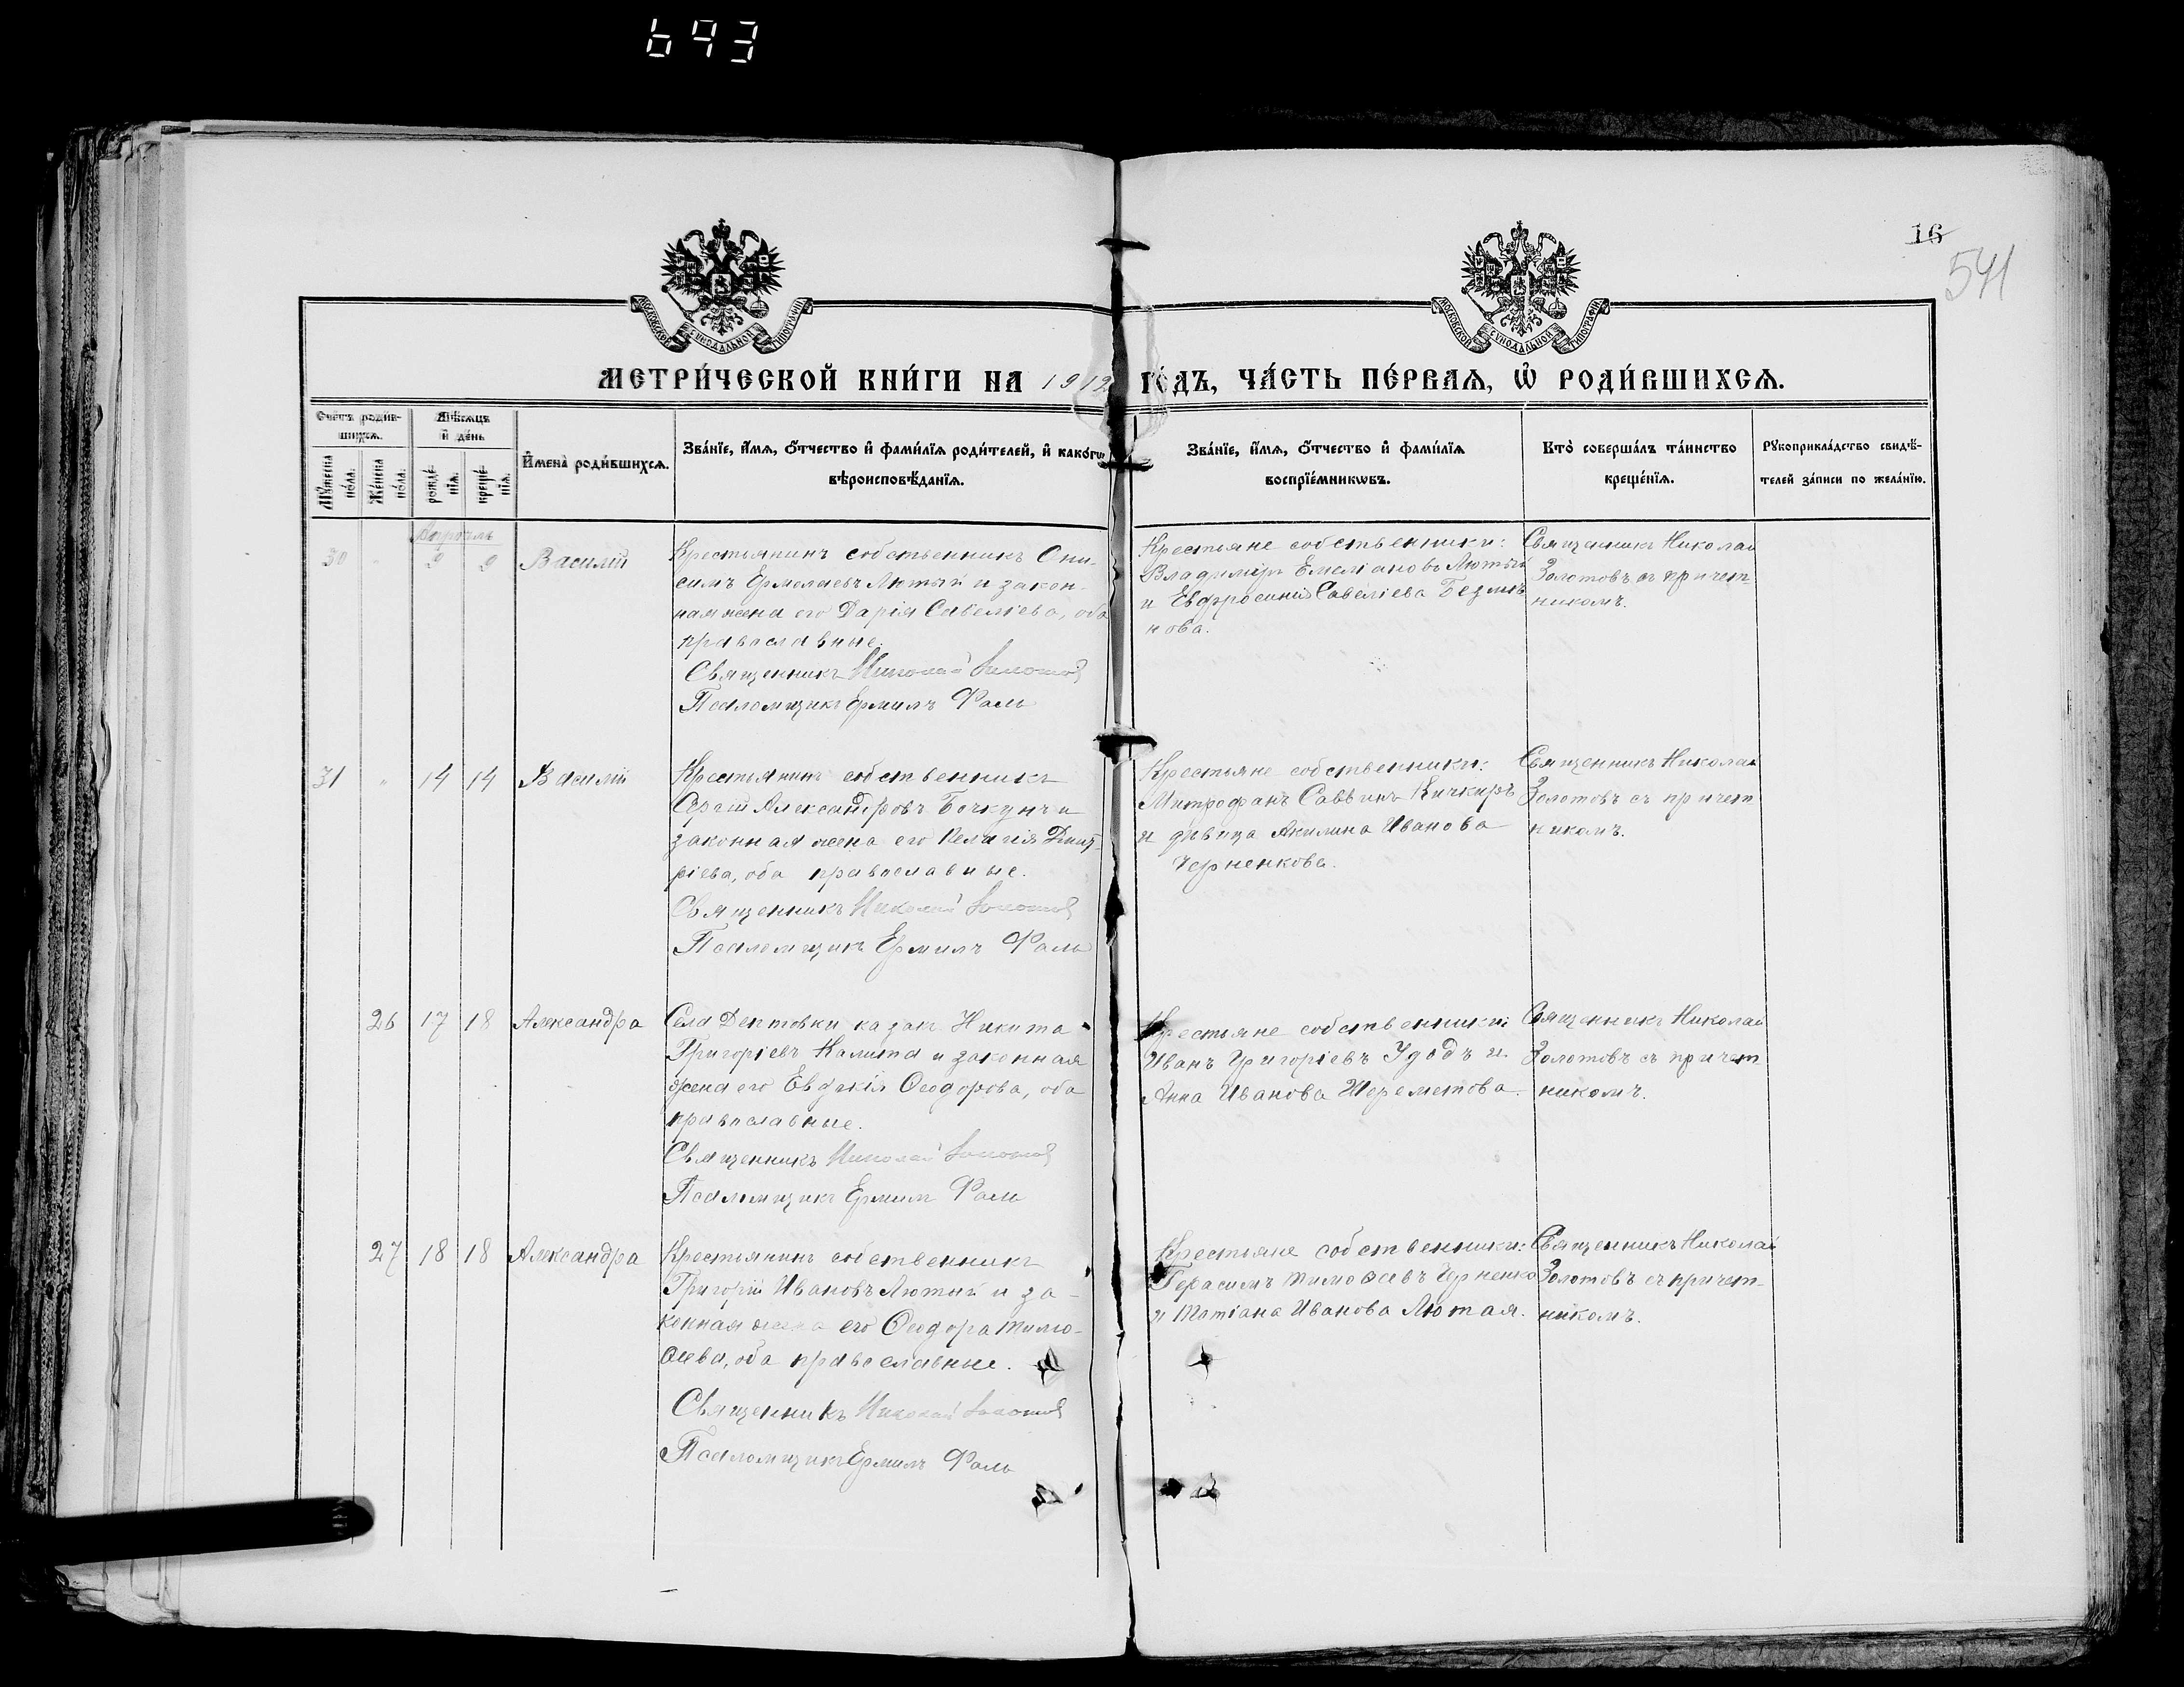 693
16
541
МОСКОВСКОЙ СѴНОДАЛЬНОЙ ТИПОГРАФІИ
МОСКОВСКОЙ СѴНОДАЛЬНОЙ ТИПОГРАФІИ
МЕТРИ́ЧЕСКОЙ КНИ́ГИ НА 1912 ГО́ДЪ, ЧА́СТЬ ПЕ́РВАѦ, Ѡ РОДИ́ВШИХСѦ.
Счетъ роди́в-
шихсѧ.
Мꙋ́жеска по́ла.
Же́нска по́ла.
Мѣ́сѧцъ
и де́нь
рожде́-
нїѧ.
креще́-
нїѧ.
Имена̀ роди́вшихсѧ.
Зва́нїе, и́мѧ, о́тчество и фами́лїѧ роди́телей, и како́гѡ
вѣроисповѣ́данїѧ.
Зва́нїе, и́мѧ, о́тчество и фами́лїѧ
воспрїе́мникѡвъ.
Кто̀ соверша́лъ та́инство
креще́нїѧ.
Рꙋкоприкла́дство свидѣ́-
телей за́писи по жела́нїю.
Апрѣль
30 " 9 9 Василій
Крестьянинъ собственникъ Они-
симъ Ермолаевъ Лютый и закон-
ная жена его Дарія Савеліева, оба
православные.
Священникъ Николай Золотовъ
Псаломщикъ Ермилъ Фаль
Крестьяне собственники:
Владиміръ Емеліановъ Лютый
и Евфросинія Савеліева
нова.
Священникъ Николай
Золотовъ съ причет-
никомъ.
31 " 14 14 Василій
Крестьянинъ собственникъ
Сергій Александровъ Бочкунъ и
законная жена его Пелагія Дмит-
ріева, оба православные.
Священникъ Николай Золотовъ
Псаломщикъ Ермилъ Фаль
Крестьяне собственники:
Митрофанъ Саввинъ Кичкиръ
и дѣвица Акилина Иванова
Черненкова.
Священникъ Николай
Золотовъ съ причет
никомъ.
26 17 18 Александра
Села Дептовки казакъ Никита
Григоріевъ Калита и законная
жена его Евдокія Ѳеодорова, оба
православные.
Священникъ Николай Золотовъ
Псаломщикъ Ермилъ Фаль
Крестьяне собственники:
Иванъ Григоріевъ Удодъ и
Анна Иванова Шереметова.
Священникъ Николай
Золотовъ съ причет
никомъ.
27 18 18 Александра
Крестьянинъ собственникъ
Григорій Ивановъ Лютый и за-
конная жена его Ѳеодора Тимо-
ѳеева, оба православные.
Священникъ Николай Золотовъ
Псаломщикъ Ермилъ Фаль
Крестьяне собственники:
Герасимъ Тимоѳеевъ Черненко
и Татіана Иванова Лютая.
Священникъ Николай
Золотовъ съ причет-
никомъ.